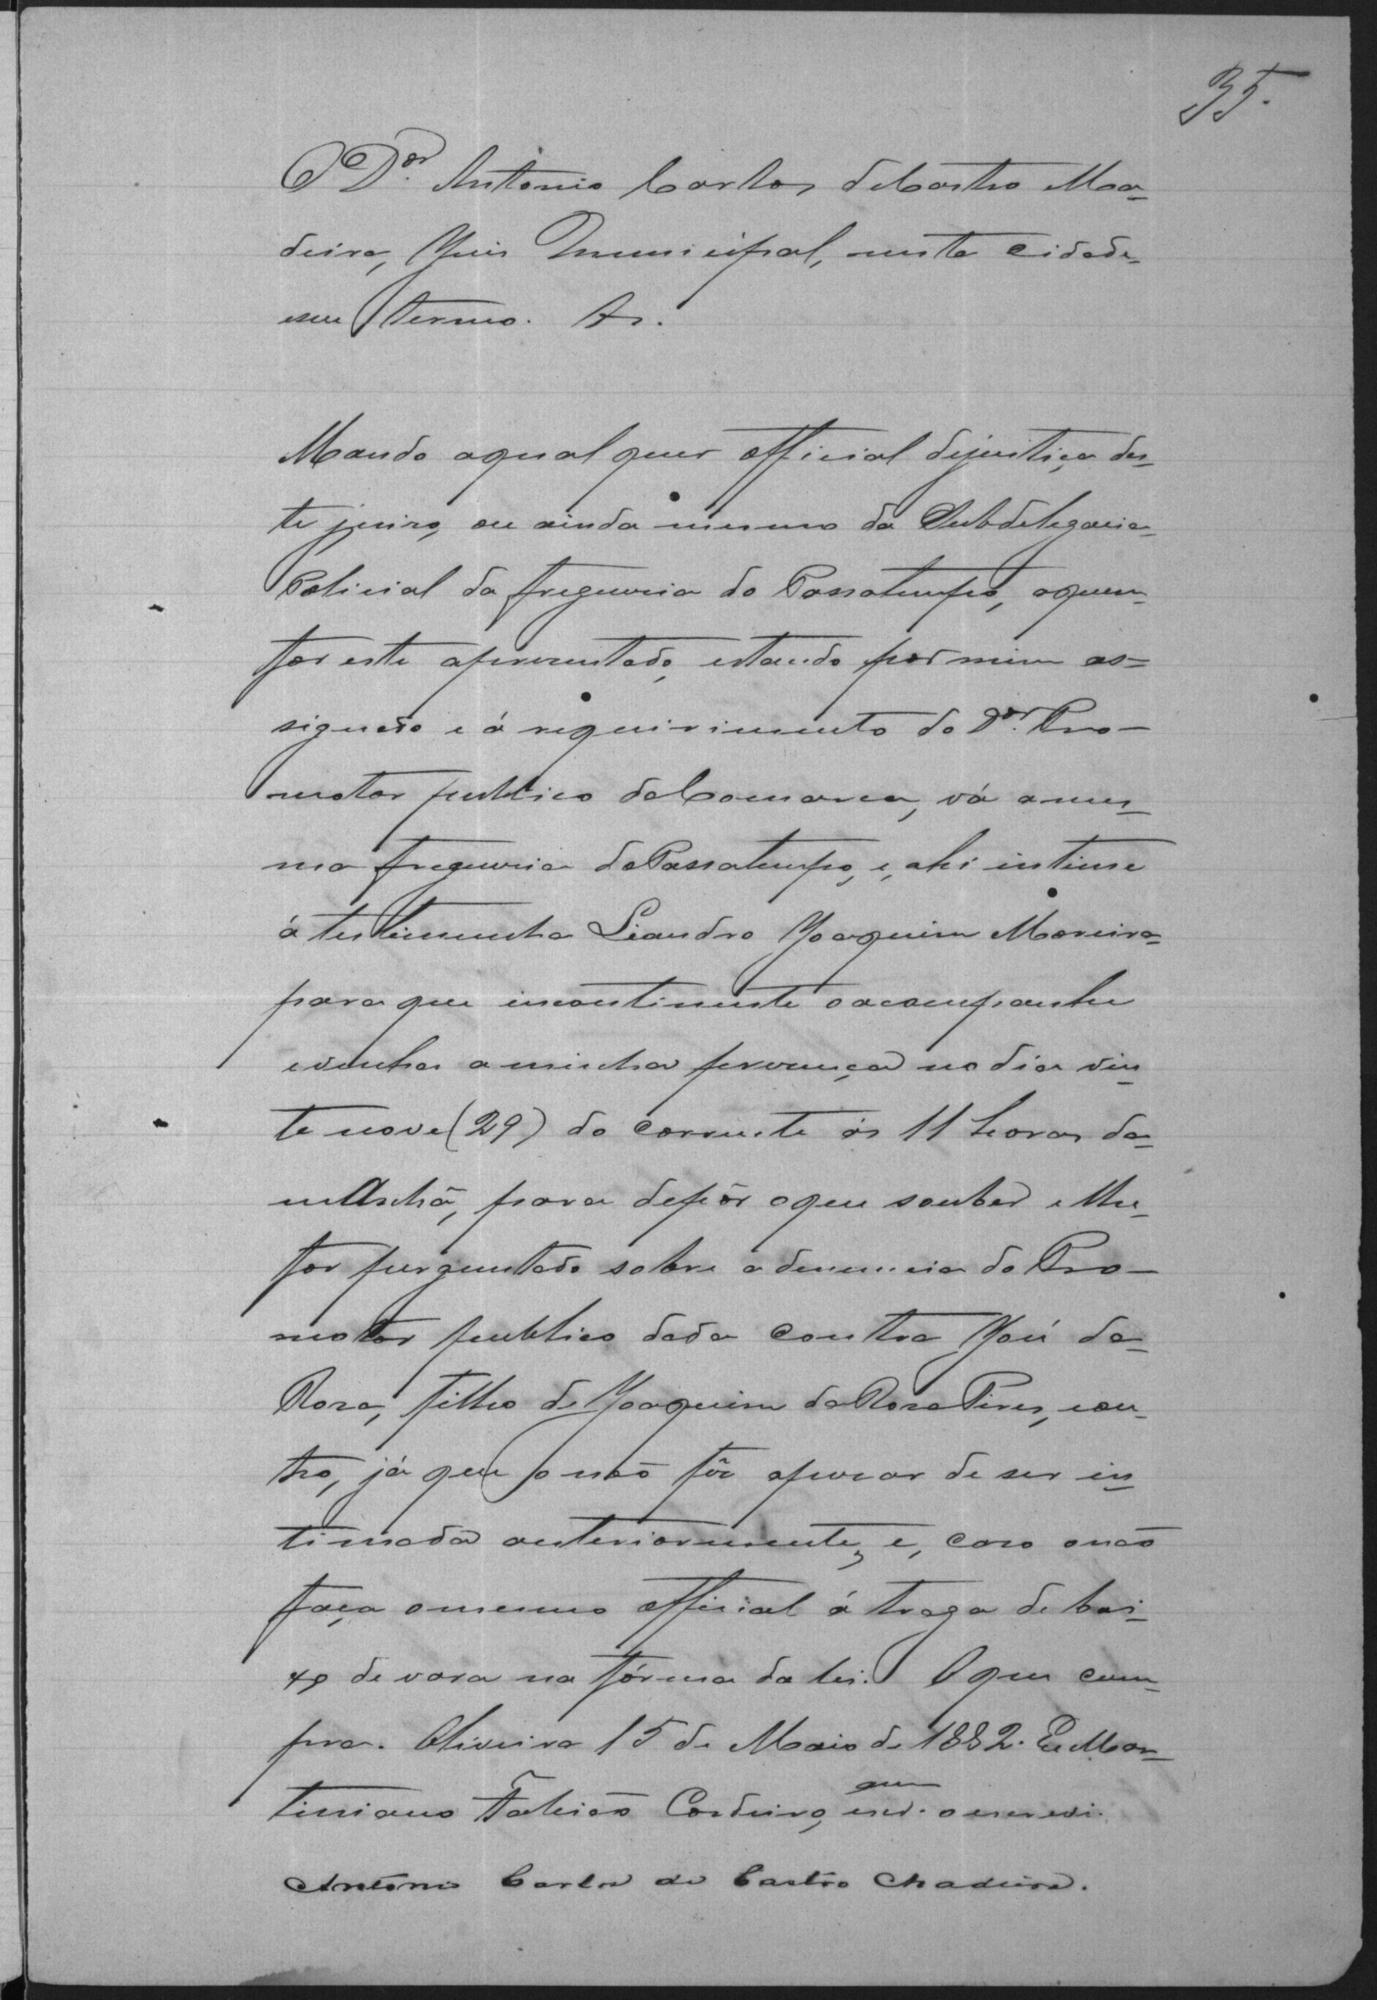 35.
O Dor. Antonio Carlos de Castro Ma-
deira, Juis Municipal, nesta cidade
e seu termo. &.
Mando a qual quer official de justiça des-
te juiso, ou ainda mesmo da Subdelegacia
Policial da freguesia do Passatempo, a quem
for este apresentado, estando por mim as=
signado e á requirimento do Dor. Pro-
motor publico da Comarca, vá a mes-
ma freguesia do Passatempo, e, ahi intime
á testimunha Leandro Joaquim Moreira
para que incontinente o acompanhe
e venha a minha presença no dia vin-
te nove (29) do corrente ás 11 horas da
manhã, para depôr o que souber e lhe
for perguntado sobre a denuncia do Pro-
motor publico dada contra José da
Rosa, filho de Joaquim da Rosa Pires, e ou-
tro, já que o não fêz apesar de ser in-
timada anteriormente, e, caso o não
faça o mesmo official á traga de bai-
xo de vara na fórma da lei. O que cum-
pra. Oliveira 15 de Maio de 1882. Eu Mar-
tiniano Fabião Cordeiro, escr. que o escrevi.
Antonio Carlos de Castro Madeira.